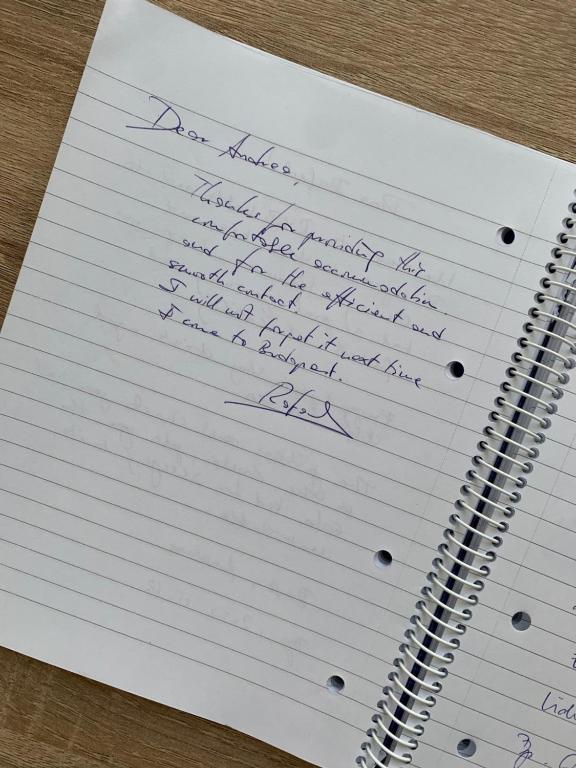 Dear Andrea,
Thanks for providing this
comfortable accommodation
and for the efficient and
smooth contact.
I will not forget it next time
I come to Budapest.